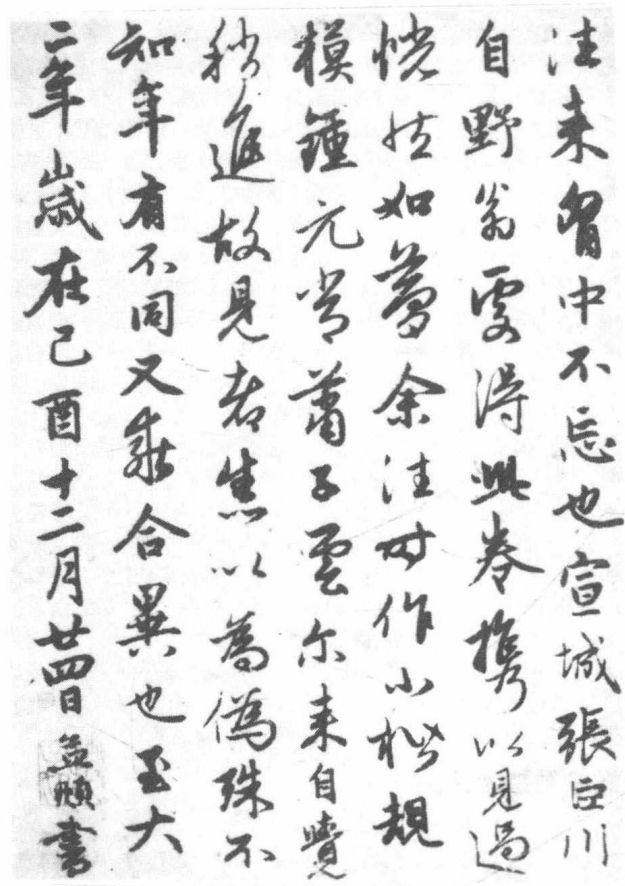 往来胷中不忘也宣城張巨川
自野翁處得此卷攜以見過
恍然如夢余往时作小楷規
模鍾元常蕭子雲尔来自覺
稍進故見者悉以為僞殊不
知年有不同又乖合異也至大
二年歲在己酉十二月廿四日孟頫書